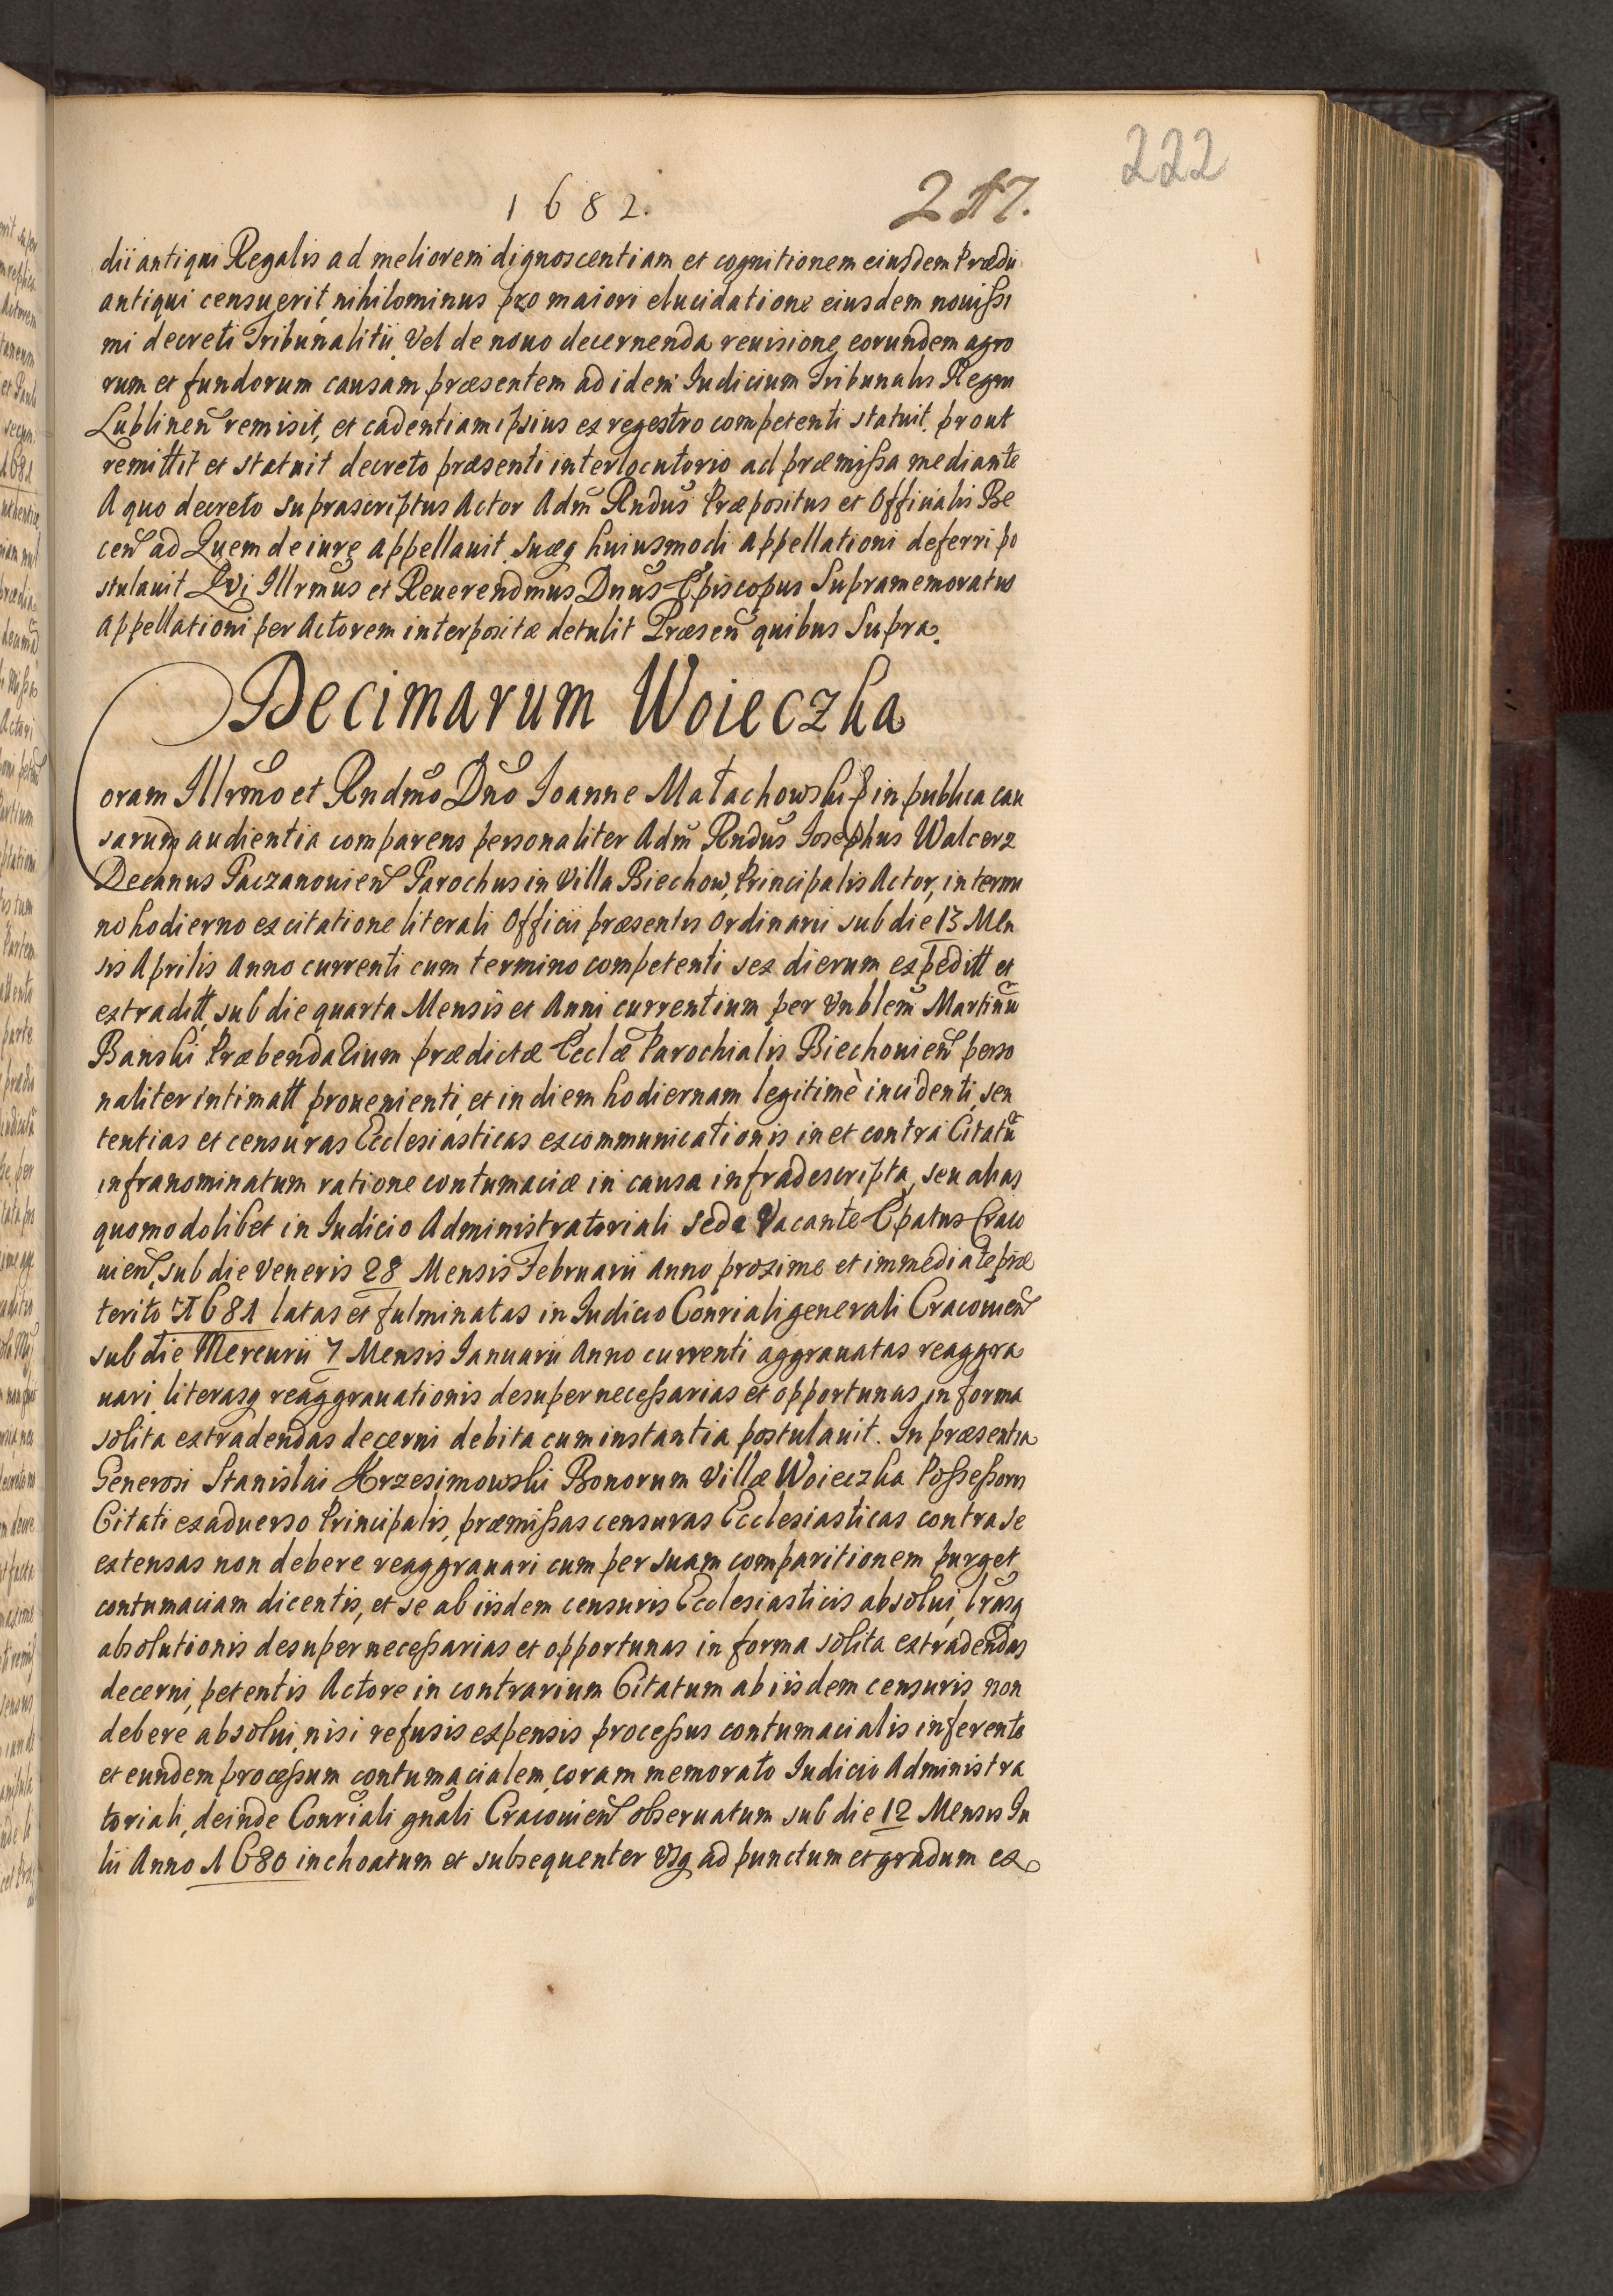 222
1682. 217.
dii antiqui Regalis ad meliorem dignoscentiam et cognitionem eiusdem Prædii
antiqui censuerit nihilominus pro maiori elucidatione eiusdem nouissi
mi decreti Tribunalitii, Vel de nouo decernenda reuisione eorundem agro
rum et fundorum causam præsentem ad idem Iudicium Tribunalis Regni
Lublinen̄ remisit, et cadentiam ipsius ex regestro competenti statuit, prout
remittit et statuit decreto præsenti interlocutorio ad præmissa mediante
A quo decreto suprascriptus Actor Adm̄ Rndus Præpositus et Officialis Be
cen̄ ad Quem de iure appellauit, suæq huiusmodi appellationi deferri po
stulauit Qvi Illrmus et Reuerendmus Dnus Episcopus Supramemoratus
appellationi per Actorem interpositæ detulit Præsen̄ quibus Supra.
Decimarum Woieczka
Coram Illrmo et Rndmo Dno Ioanne Małachowski E in publica cau
sarum audientia comparens personaliter Adm̄ Rndus Iosephus Walcerz
Decanus Paczanouien̄ Parochus in Villa Biechow, Principalis Actor, in termi
no hodierno ex citatione literali Officii præsentis Ordinarii sub die 13 Men
sis Aprilis Anno currenti cum termino competenti sex dierum expeditt et
extraditt, sub die quarta Mensis et Anni currentium per Vnblem Martinū
Banski Præbendarium prædictæ Ecclæ Parochialis Biechouien̄ perso
naliter intimatt prouenienti, et in diem hodiernam legitimè incidenti, sen
tentias et censuras Ecclesiasticas excommunicationis in et contra Citatū
infranominatum ratione contumaciæ in causa infradescripta, seu alias
quomodolibet in Iudicio Administratoriali sede Vacante Epatus Craco
uien̄, sub die Veneris 28 Mensis Februarii Anno proxime et immediate præ
terito 1681 latas et fulminatas in Iudicio Conriali generali Cracouien̄
sub die Mercurii 7 Mensis Ianuarii Anno currenti aggrauatas reaggra
uari, literasq reaggrauationis desuper necessarias et opportunas in forma
solita extradendas decerni debita cum instantia postulauit. In præsentia
Generosi Stanislai Krzesimowski Bonorum Villæ Woieczka Possessoris
Citati ex aduerso Principalis, præmissas censuras Ecclesiasticas contra se
extensas non debere reaggrauari cum per suam comparitionem purget
contumaciam dicentis, et se ab iisdem censuris Ecclesiasticis absolui, lrasq
absolutionis desuper necessarias et opportunas in forma solita extradendas
decerni, petentis Actore in contrarium Citatum ab iisdem censuris non
debere absolui, nisi refusis expensis processus contumacialis inferente
et eundem processum contumacialem coram memorato Iudicio Administra
toriali, deinde Conriali gnāli Cracouien̄ obseruatum sub die 12 Mensis Iu
lii Anno 1680 inchoatum et subsequenter Vsq ad punctum et gradum ex